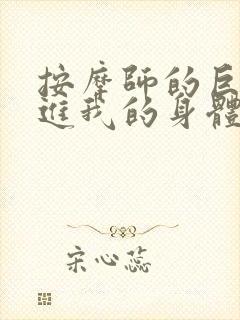 按摩師的巨
進我的身體
宋心蕊